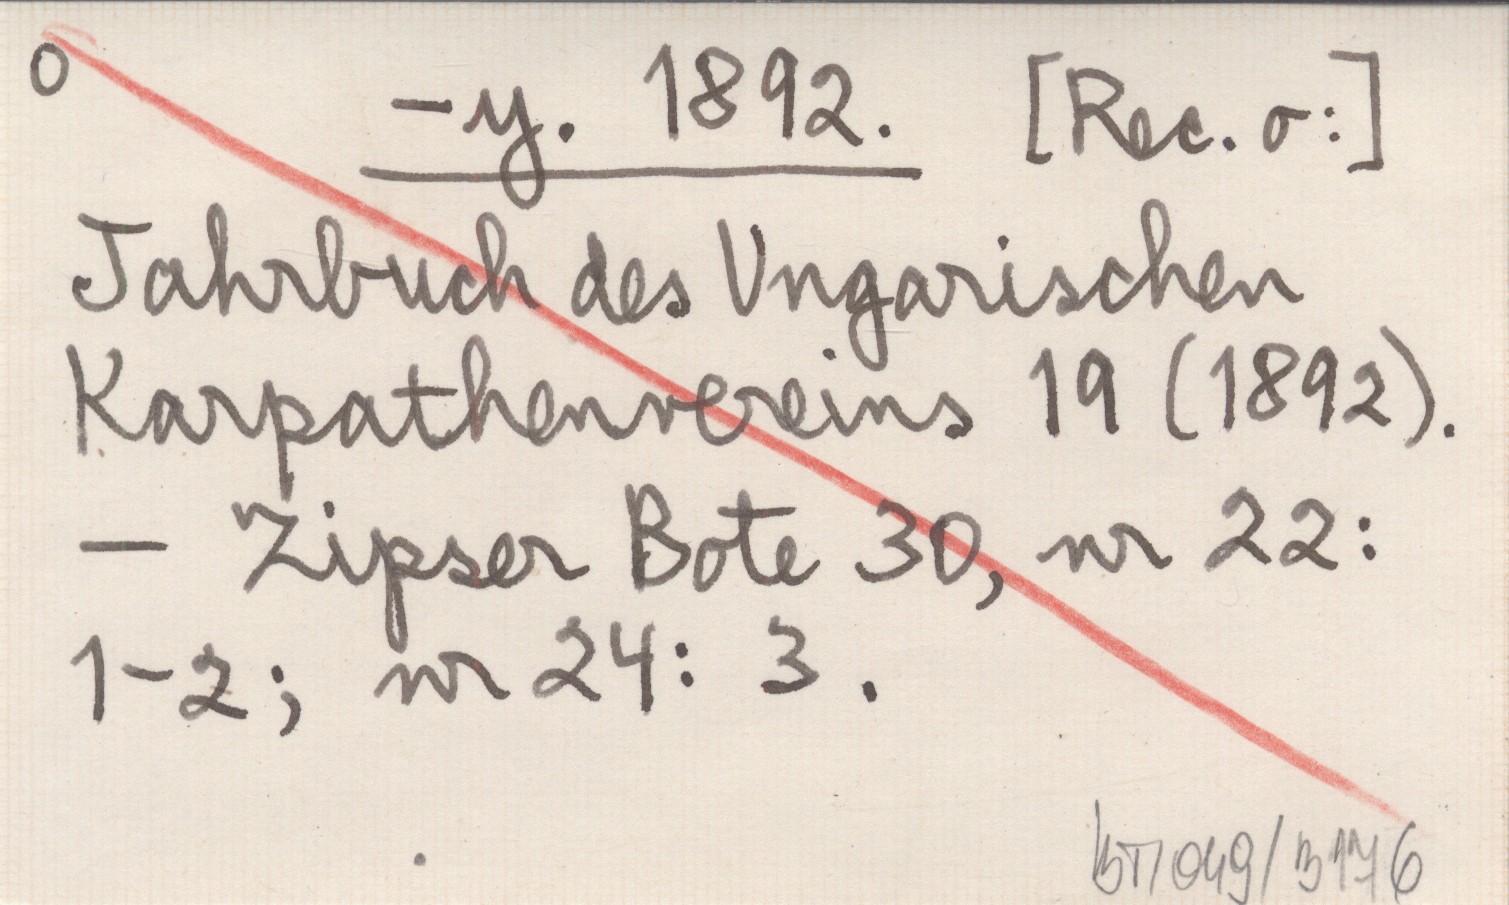 o
-y. 1892. [Rec. o:]
Jahrbuch des Ungarischen
Karpathenvereins 19 (1892).
— Zipser Bote 30, nr 22:
1-2; nr 24: 3.